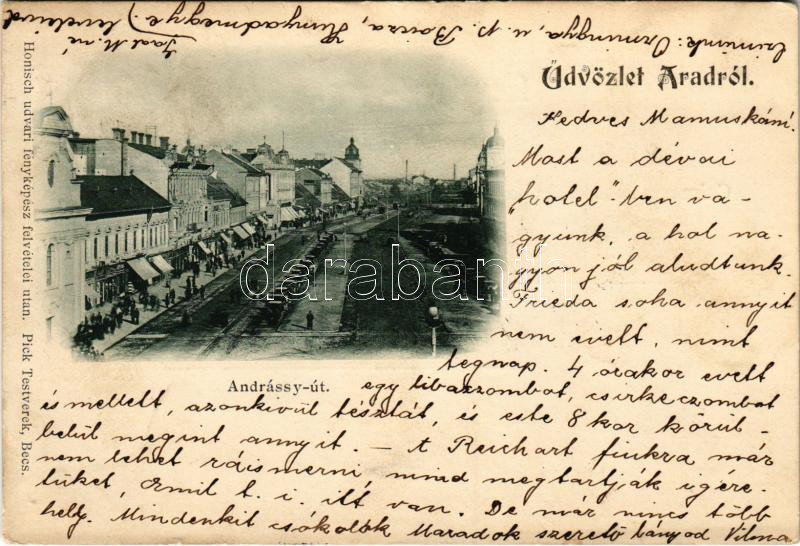 Czimünk: Ormingya, u. p. Boicza, Hunyadmegye.)
Üdvözlet Aradról.
Honisch udvari fényképész felvételei után. Pick Testverek, Becs.
Kedves Mamuskám!
Most a dévai
"hotel"-ben va-
gyunk, a hol na-
gyon jól aludtunk.
Frieda soha annyit
nem evett, mint
tegnap. 4 órakor evett
Andrássy-út.
egy libaczombot, csirkeczombot
is mellett, azonkivül tésztát, és este 8 kor körül-
belül megint annyit. — A Reichart fiukra már
nem lehet ráismerni, mind megtartják igére-
tüket, Emil t. i. itt van. De már nincs több
hely. Mindenkit csókolok Maradok szerető lányod Vilma
darabanth.com